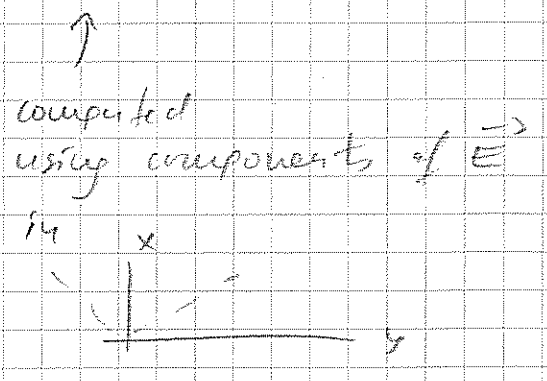 computed
using components of E
in
x
y